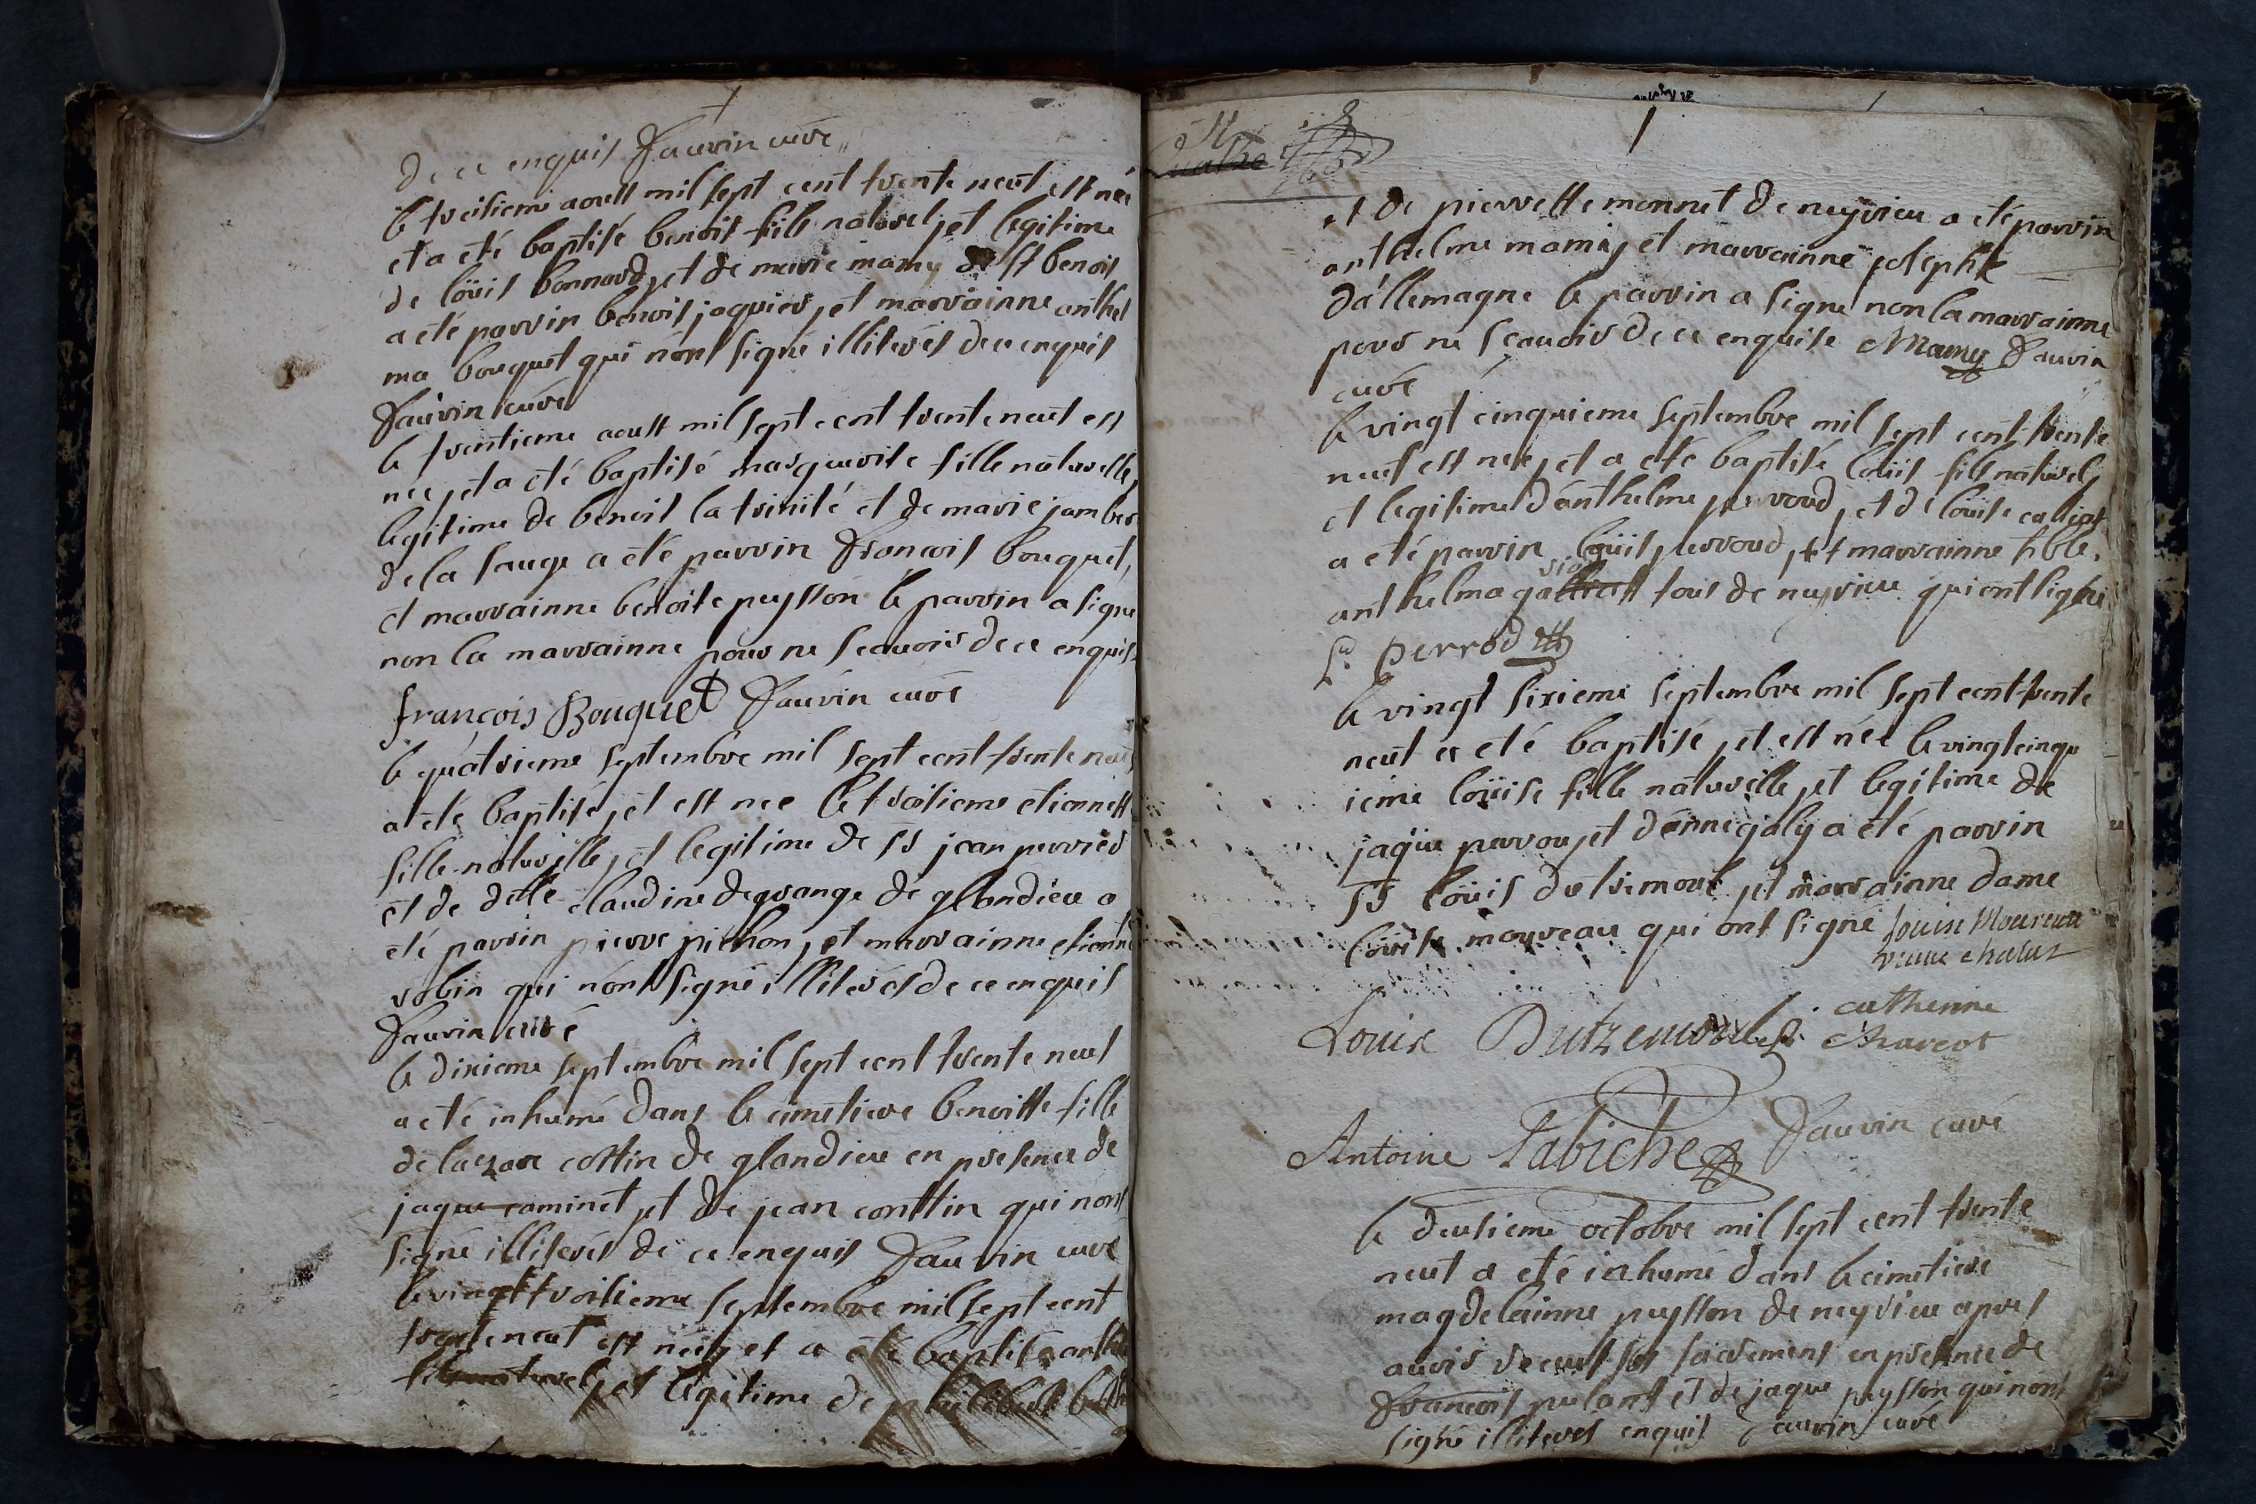 de ce enquis Fauvin curé
le troisieme aoust mil sept cent trente neuf est née
et a été baptisé benoit fils naturel, et legitime
de loüis bonnard, et de marie mamy de st benoit
a été parrin benoit jaquier, et marrainne anthel
ma bouquet qui n'ont signé illiterés de ce enquis
Fauvin curé
le trentieme aoust mil sept cent trente neuf est
née, et a été baptisé marguerite fille naturelle,
legitime de benoit la trinité et de marie jamber
de la sauge a été parrin François bouquet,
et marrainne benoite peysson le parrin a signé
non la marrainne pour ne scauoir de ce enquis
françois Bouquet Fauvin curé
le quatrieme septembre mil sept cent trente neuf
a été baptisé, et est nee le troisieme etiennette
fille naturelle, et legitime de sr jean perrier
et de delle claudine degrange de glandieu a
été parrin pierre pichon, et marrainne etiennette
robin qui n'ont signé illiterés de ce enquis
Fauvin curé
le dixieme septembre mil sept cent trente neuf
a été inhumé dans le cimetiere benoitte fille
de lazare cottin de glandieu en presence de
jaque caminet, et de jean conttin qui n'ont
signé illiterés de ce enquis Fauvin curé
le vingt troisieme septembre mil sept cent
trente neuf est née, et a été baptisé anthel
fils naturel, et legitime de philibert
et de pierrette monnet de neyrieu a été parrin
anthelme mamy et marrainne josephte
d'allemagne le parrin a signé non la marrainne
pour ne scauoir de ce enquise Mamy Fauvin
curé
le vingt cinquieme septembre mil sept cent trente
neuf est née, et a été baptisé loüis fils naturel,
et legitime d'anthelme perroud, et de loüise calliat
a été parrin loüis perroud, et marrainne
anthelma tous de neyrieu qui ont signé
Ls. perrod
le vingt sixieme septembre mil sept cent trente
neuf a été baptisé, et est née le vingt cinqu
ieme loüise fille naturelle, et legitime de
jaque perrou, et d'anne galy a été parrin
sr loüis dutremoul, et marrainne dame
loüise moureau qui ont signé louise Moureau
veuue chalut
Louis Dutzemoul catherine
Charcot
Antoine Labiche Fauvin curé
le deusieme octobre mil sept cent trente
neuf a été inhumé dans le cimetiere
magdelainne peysson de neyrieu apres
auoir receut ses sacrements en presence de
François pulant et de jaque peysson qui n'ont
signé illiterés enquis Fauvin curé